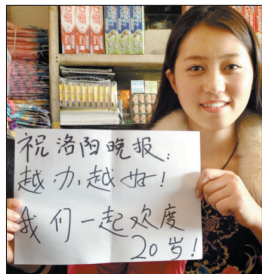 祝洛阳晚报：
越办越好！
我们一起欢度
20岁！